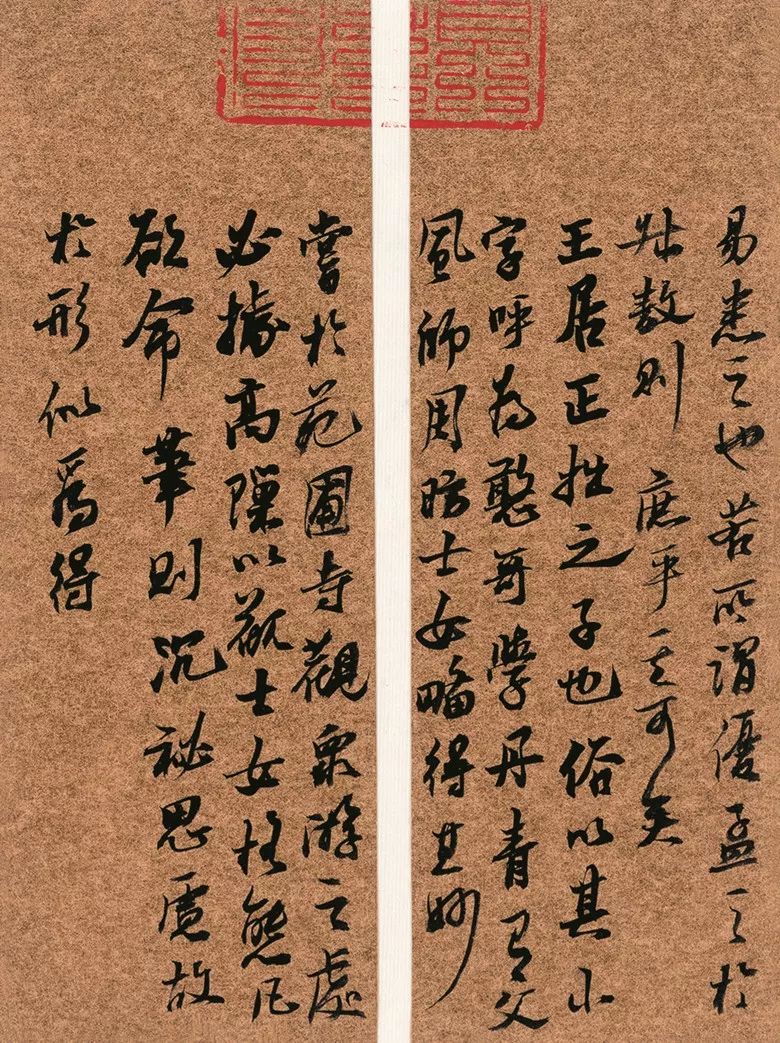 易悉之也若所謂優孟之於
叔敖則庶乎其可矣
王居正拙之子也俗以其小
字呼為憨哥學丹青有父
風師周昉士女略得其妙
嘗於苑圃寺觀眾游之處
必據高隙以觀士女格態凡
欲命筆則沉祕思慮故
於形似為得